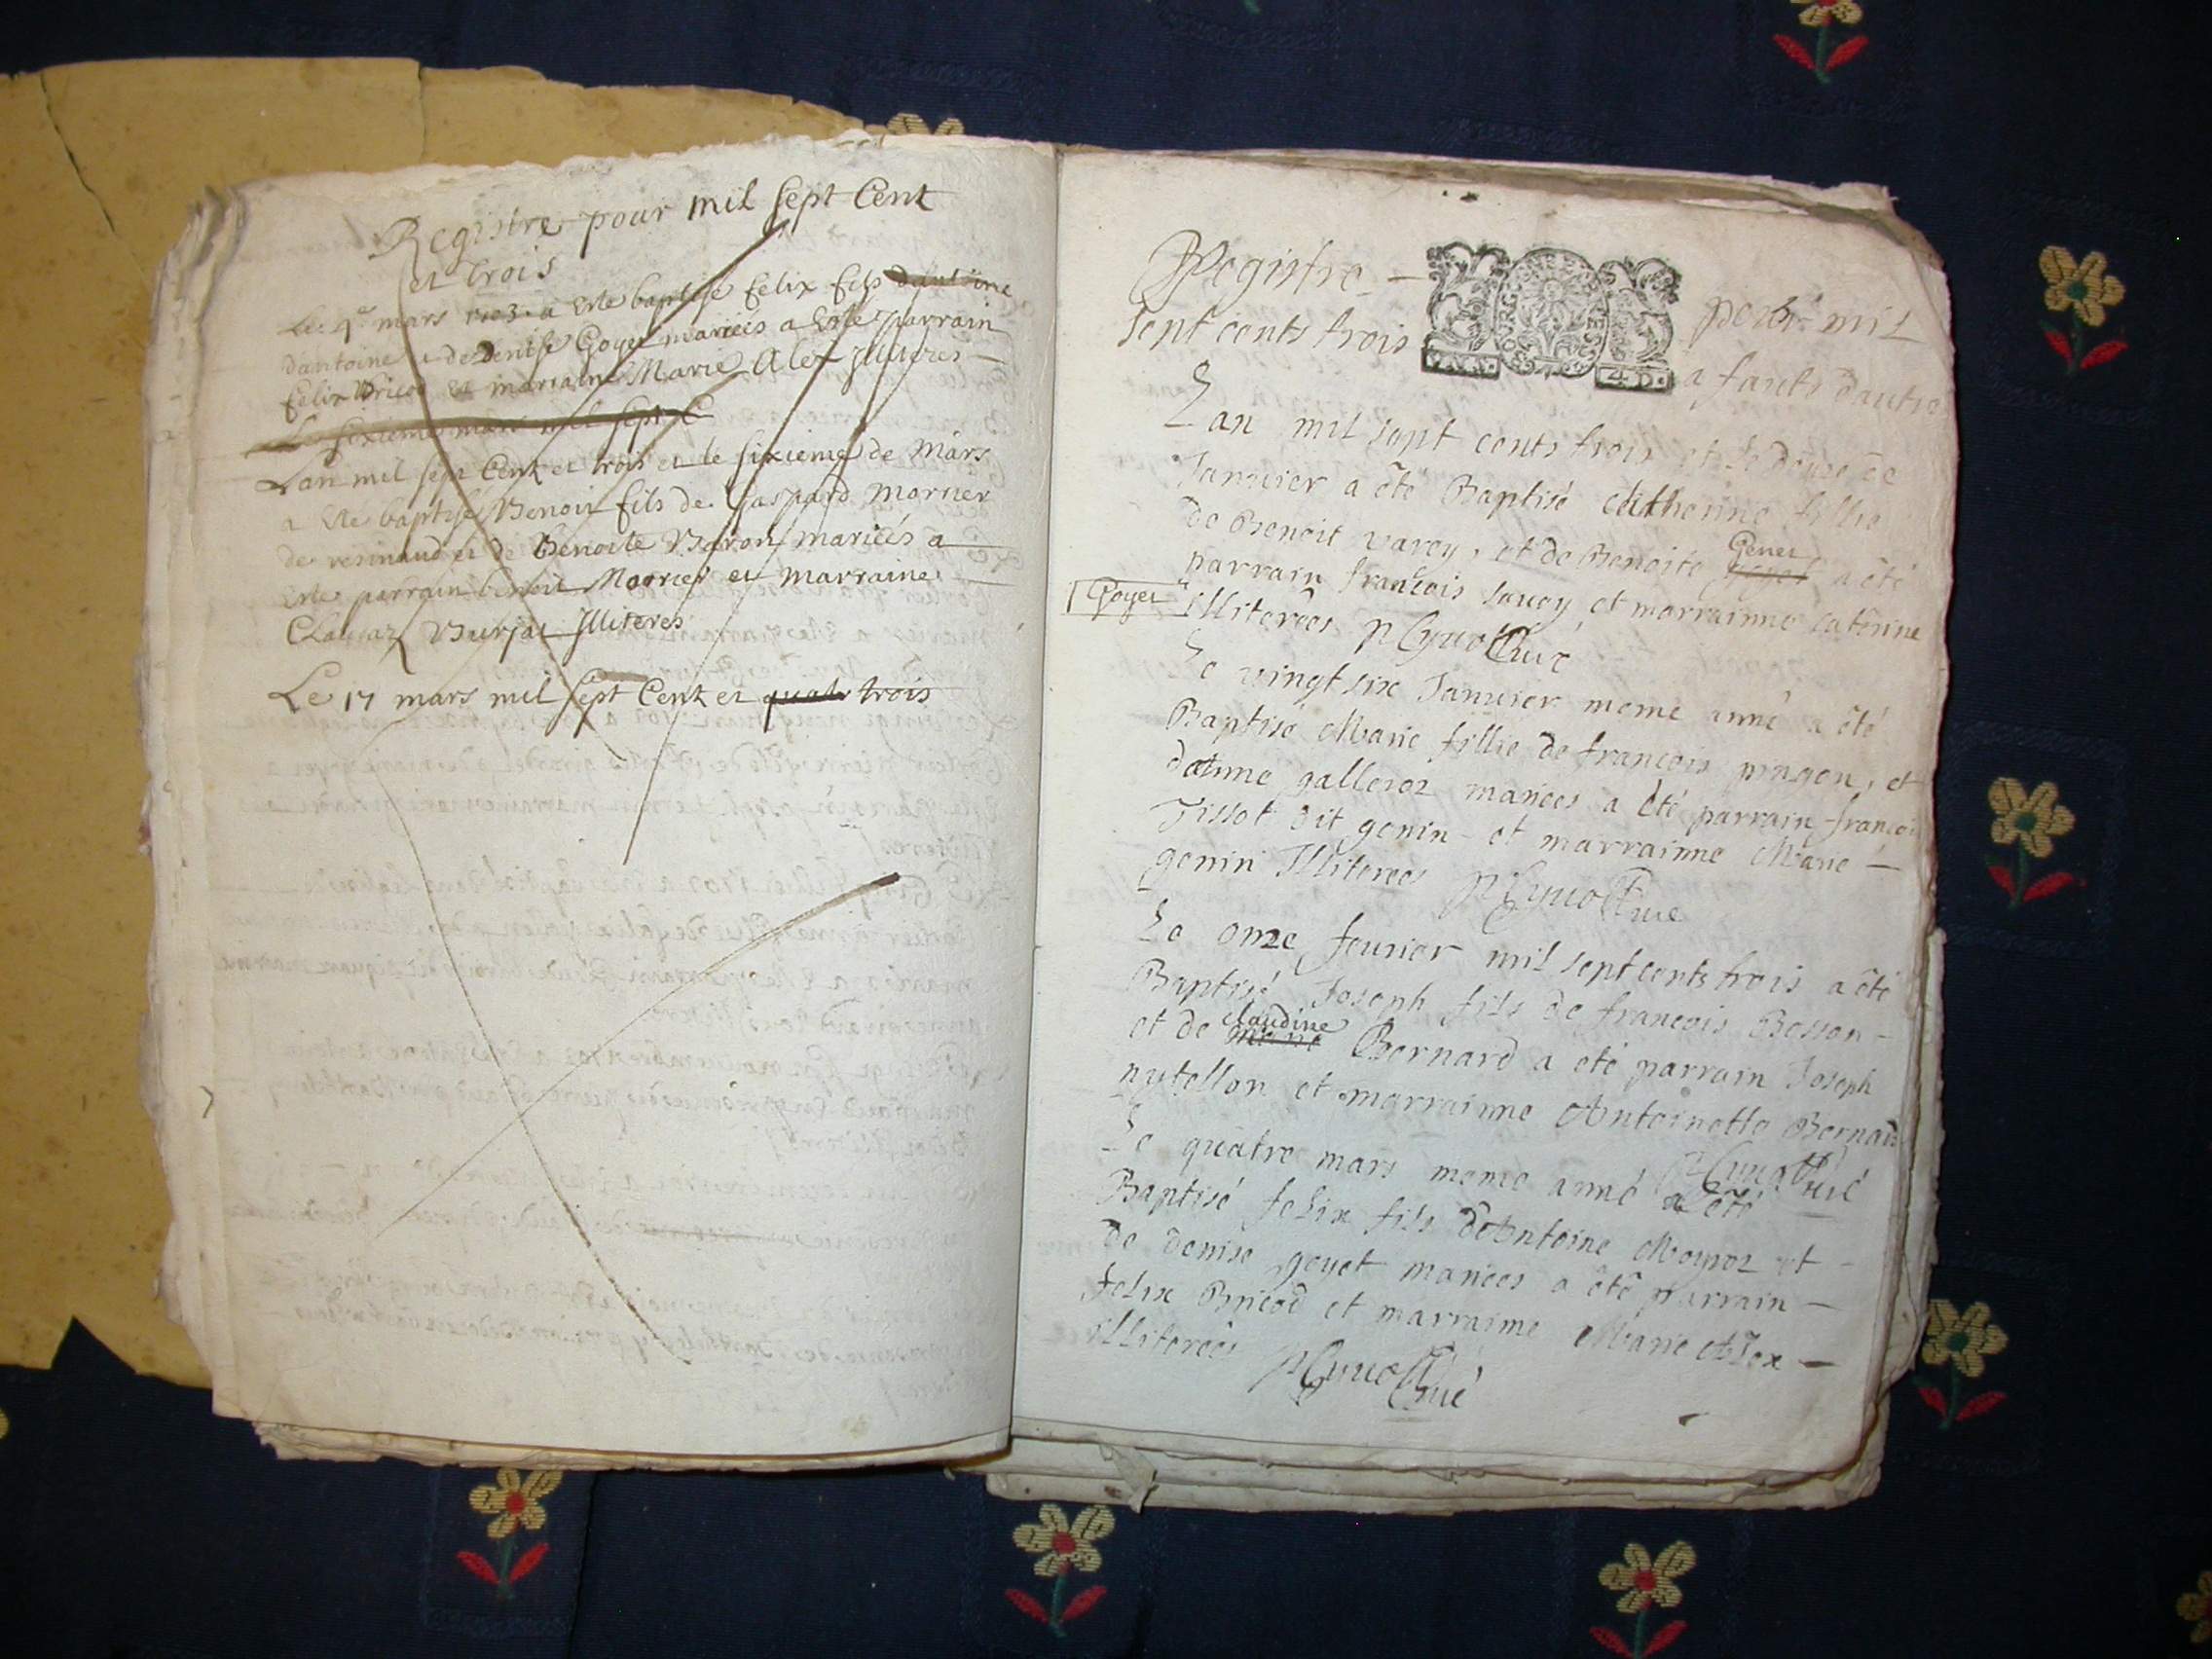 Registre pour mil sept Cent
et trois
Le 4e mars 1703 a este baptisé felix fils dantoine
dantoine et de Denise Goyet mariés a este parrain
felix Bricod et marraine Marie Alex illiteres
Le sixieme mars mil sept C
Lan mil sept Cent et trois et le sixieme de Mars
a este baptisé Benoit fils de Gaspard Morrier
de et de Benoite Baron mariés a
este parrain benoit Morrier et marraine
Burjat Illiteres
Le 17 mars mil sept Cent et quatr trois
Registre pour mil
sept cents trois a fauts dautre
GEN 4.D.
Lan mil sept cents trois et le douse de
Januier a êté Baptisé Catherine fillie
de Benoit varey, et de Benoite Goyet Genet a êté
parrain françois sauey et marrainne catèrine
Goyet illiterées
Le vingt six Januier meme anné a êté
Baptisé Marie fillie de françois pragon, et
danne galleroz mariees a êté parrain françois
Tissot dit genin et marrainne Marie
genin Illiterees
Le onze feurier mil sept cents trois a êté
Baptisé Joseph fils de françois Besson
et de Marie claudine Bernard a eté parrain Joseph
nytellon et marrainne Antoinette Bernard
Le quatre mars meme anné a êté
Baptisé felix fils dAntoine Moyroz et
de denise goyet mariees a êté parrain
felix Bricod et marraine Marie Alex
illiterees